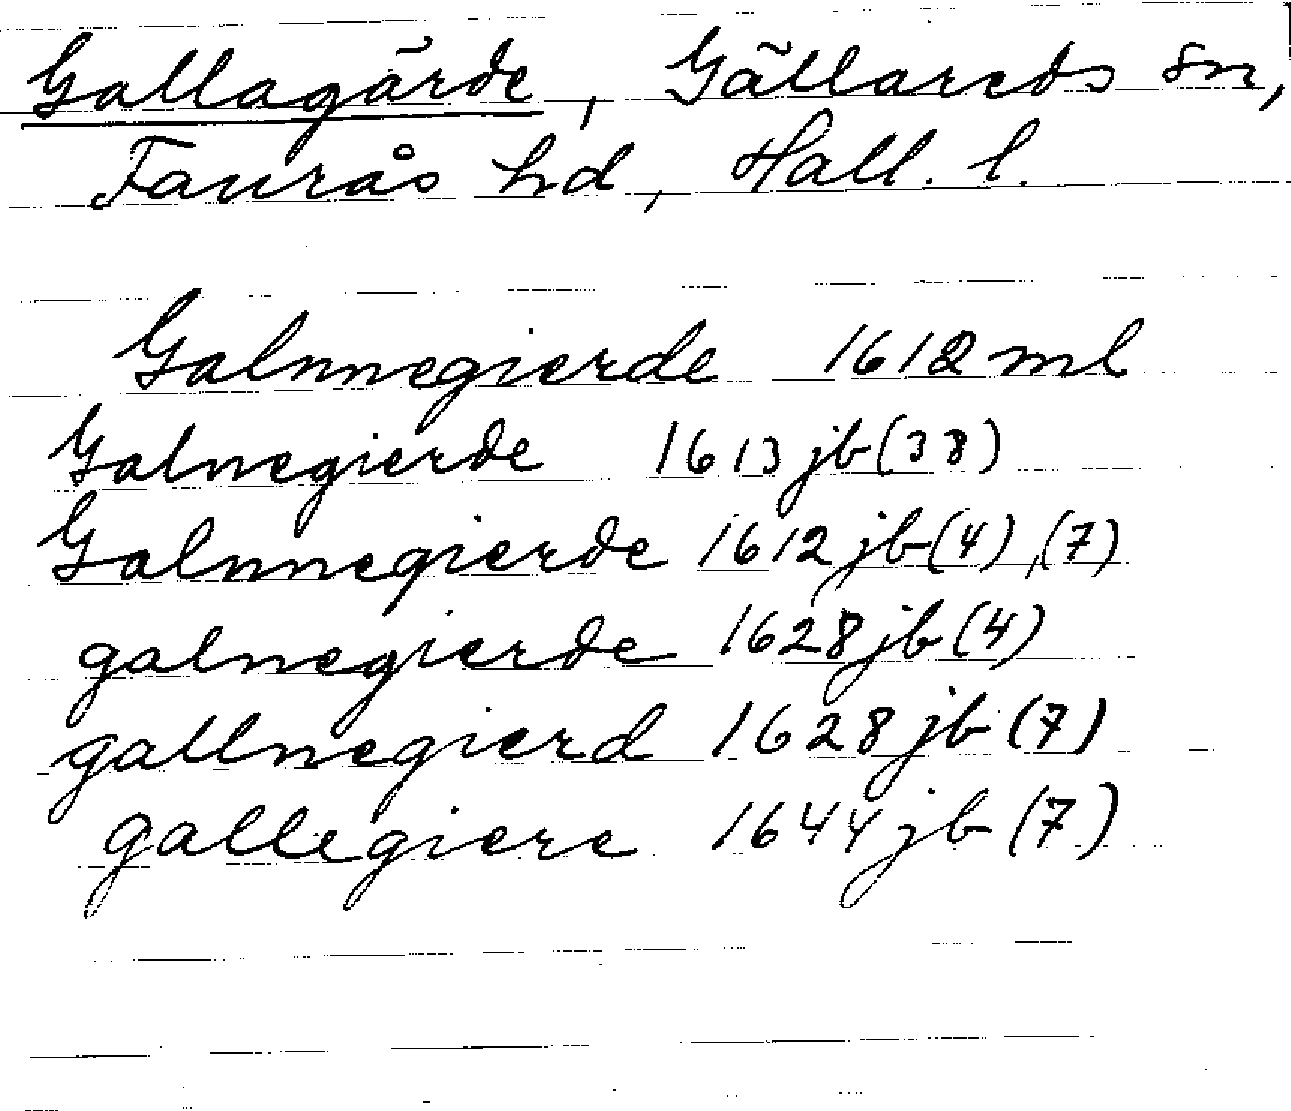 Gallagärde, Gällareds sn,
Faurås hd, Hall. l.
Galnnegierde 1612 ml
Galnegierde 1613 jb (38)
Galnnegierde 1612 jb (4), (7)
galnegierde 1628 jb (4)
gallnegierd 1628 jb (7)
gallegiere 1644 jb (7)